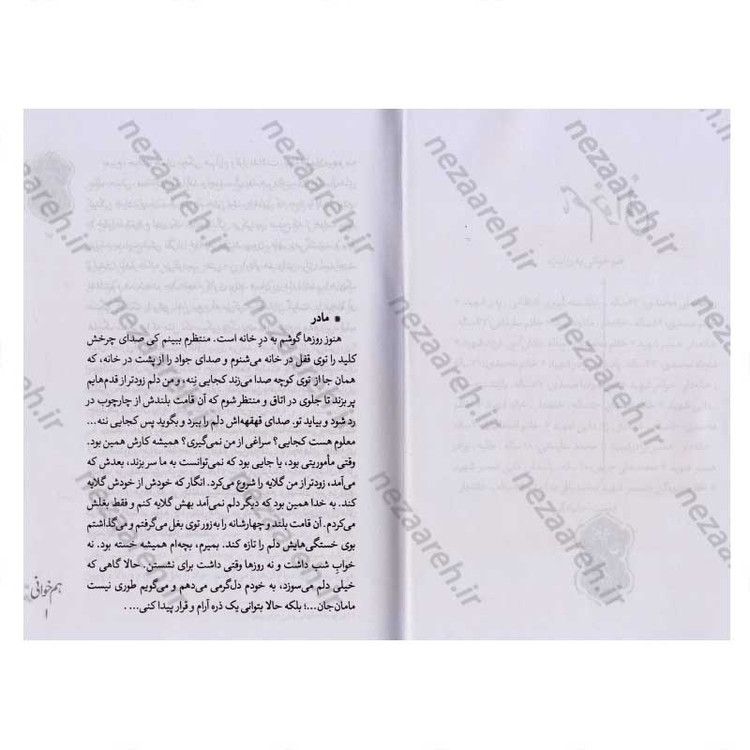 ● مادر
هنوز روزها گوشم به در خانه است. منتظرم ببینم کی صدای چرخش
کلید را توی قفل در خانه می‌شنوم و صدای جواد را از پشت در خانه، که
همان جا از توی کوچه صدا می‌زند کجایی ننه، و من دلم زودتر از قدم‌هایم
پر بزند تا جلوی در اتاق و منتظر شوم که آن قامت بلندش از چارچوب در
رد شود و بیاید تو. صدای قهقهه‌اش دلم را ببرد و بگوید پس کجایی ننه...
معلوم هست کجایی؟ سراغی از من نمی‌گیری؟ همیشه کارش همین بود.
وقتی مأموریتی بود، یا جایی بود که نمی‌توانست به ما سر بزند، بعدش که
می‌آمد، زودتر از من گلایه را شروع می‌کرد. انگار که خودش از خودش گلایه
کند. به خدا همین بود که دیگر دلم نمی‌آمد بهش گلایه کنم و فقط بغلش
می‌کردم. آن قامت بلند و چهارشانه را به زور توی بغل می‌گرفتم و می‌گذاشتم
بوی خستگی‌هایش دلم را تازه کند. بمیرم، بچه‌ام همیشه خسته بود. نه
خواب شب داشت و نه روزها وقتی داشت برای نشستن. حالا گاهی که
خیلی دلم می‌سوزد، به خودم دل‌گرمی می‌دهم و می‌گویم طوری نیست
مامان‌جان...؛ بلکه حالا بتوانی یک ذره آرام و قرار پیدا کنی... .
هم‌خوانی
۱
nezaareh.ir
nezaareh.ir
nezaareh.ir
nezaareh.ir
nezaareh.ir
nezaareh.ir
nezaareh.ir
nezaareh.ir